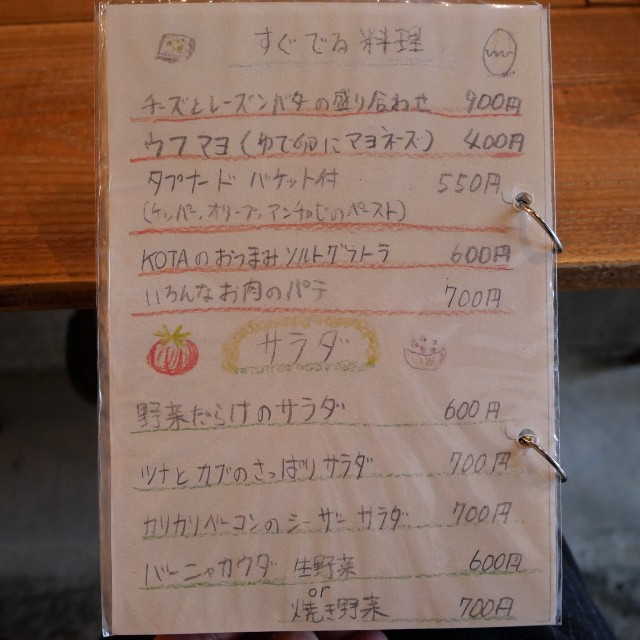 すぐでる料理
チーズとレーズンバターの盛り合わせ 900円
ウフマヨ(ゆで卵にマヨネーズ) 400円
タプナード バケット付 550円
(ケッパー、オリーブ、アンチョビのペースト)
KOTAのおつまみソルトグラトラ 600円
いろんなお肉のパテ 700円
サラダ
野菜だらけのサラダ 600円
ツナとカブのさっぱりサラダ 700円
カリカリベーコンのシーザーサラダ 700円
バーニャカウダ 生野菜 600円
or
焼き野菜 700円